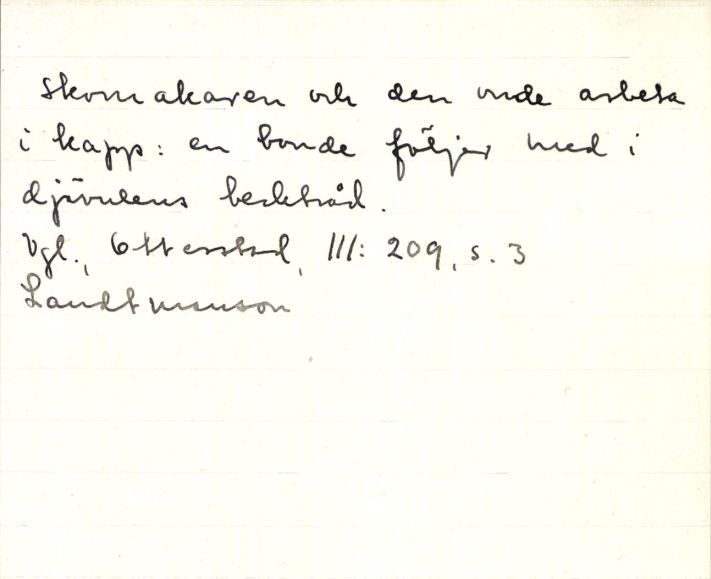 Skomakaren och den onde arbeta
i kapp: en bonde följer med i
djävulens becktråd.
Vgl., Otterstad, III: 209, s. 3
Landtmanson